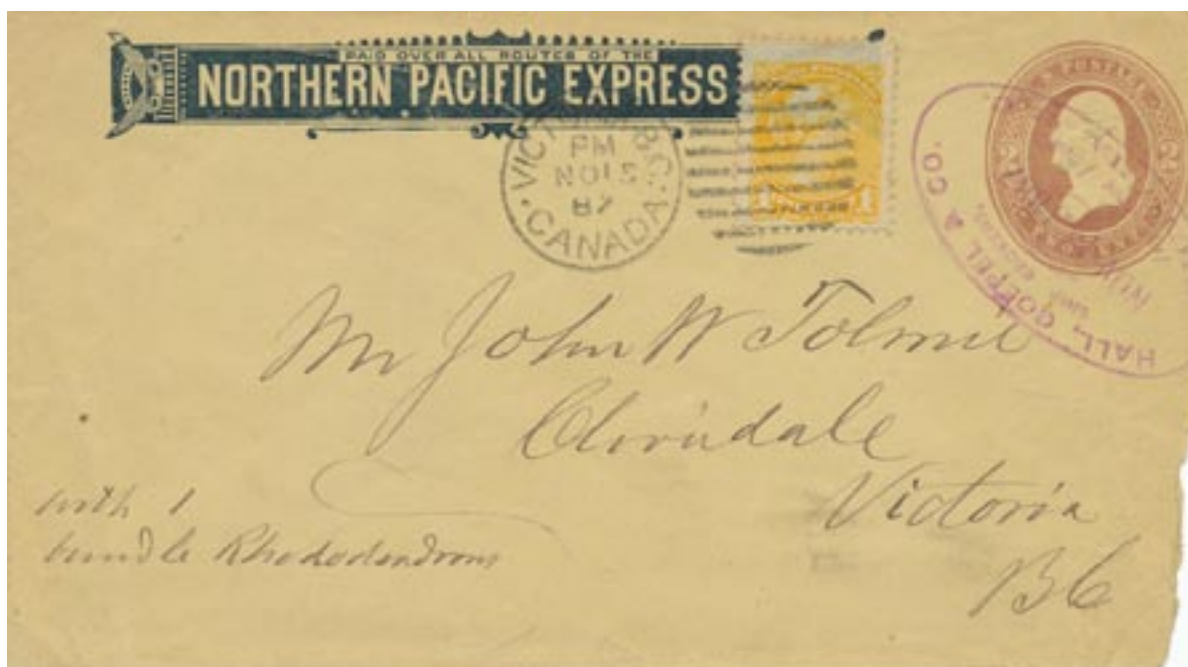 PAID OVER ALL ROUTES OF THE
NORTHERN PACIFIC EXPRESS
VICTORIA B.C.
PM
NO 15
87
CANADA
1 1
POSTAGE
HALL, GOEPEL & CO.
Mr John W Tolmie
Victoria
B C
with 1
bundle Rhododendrons